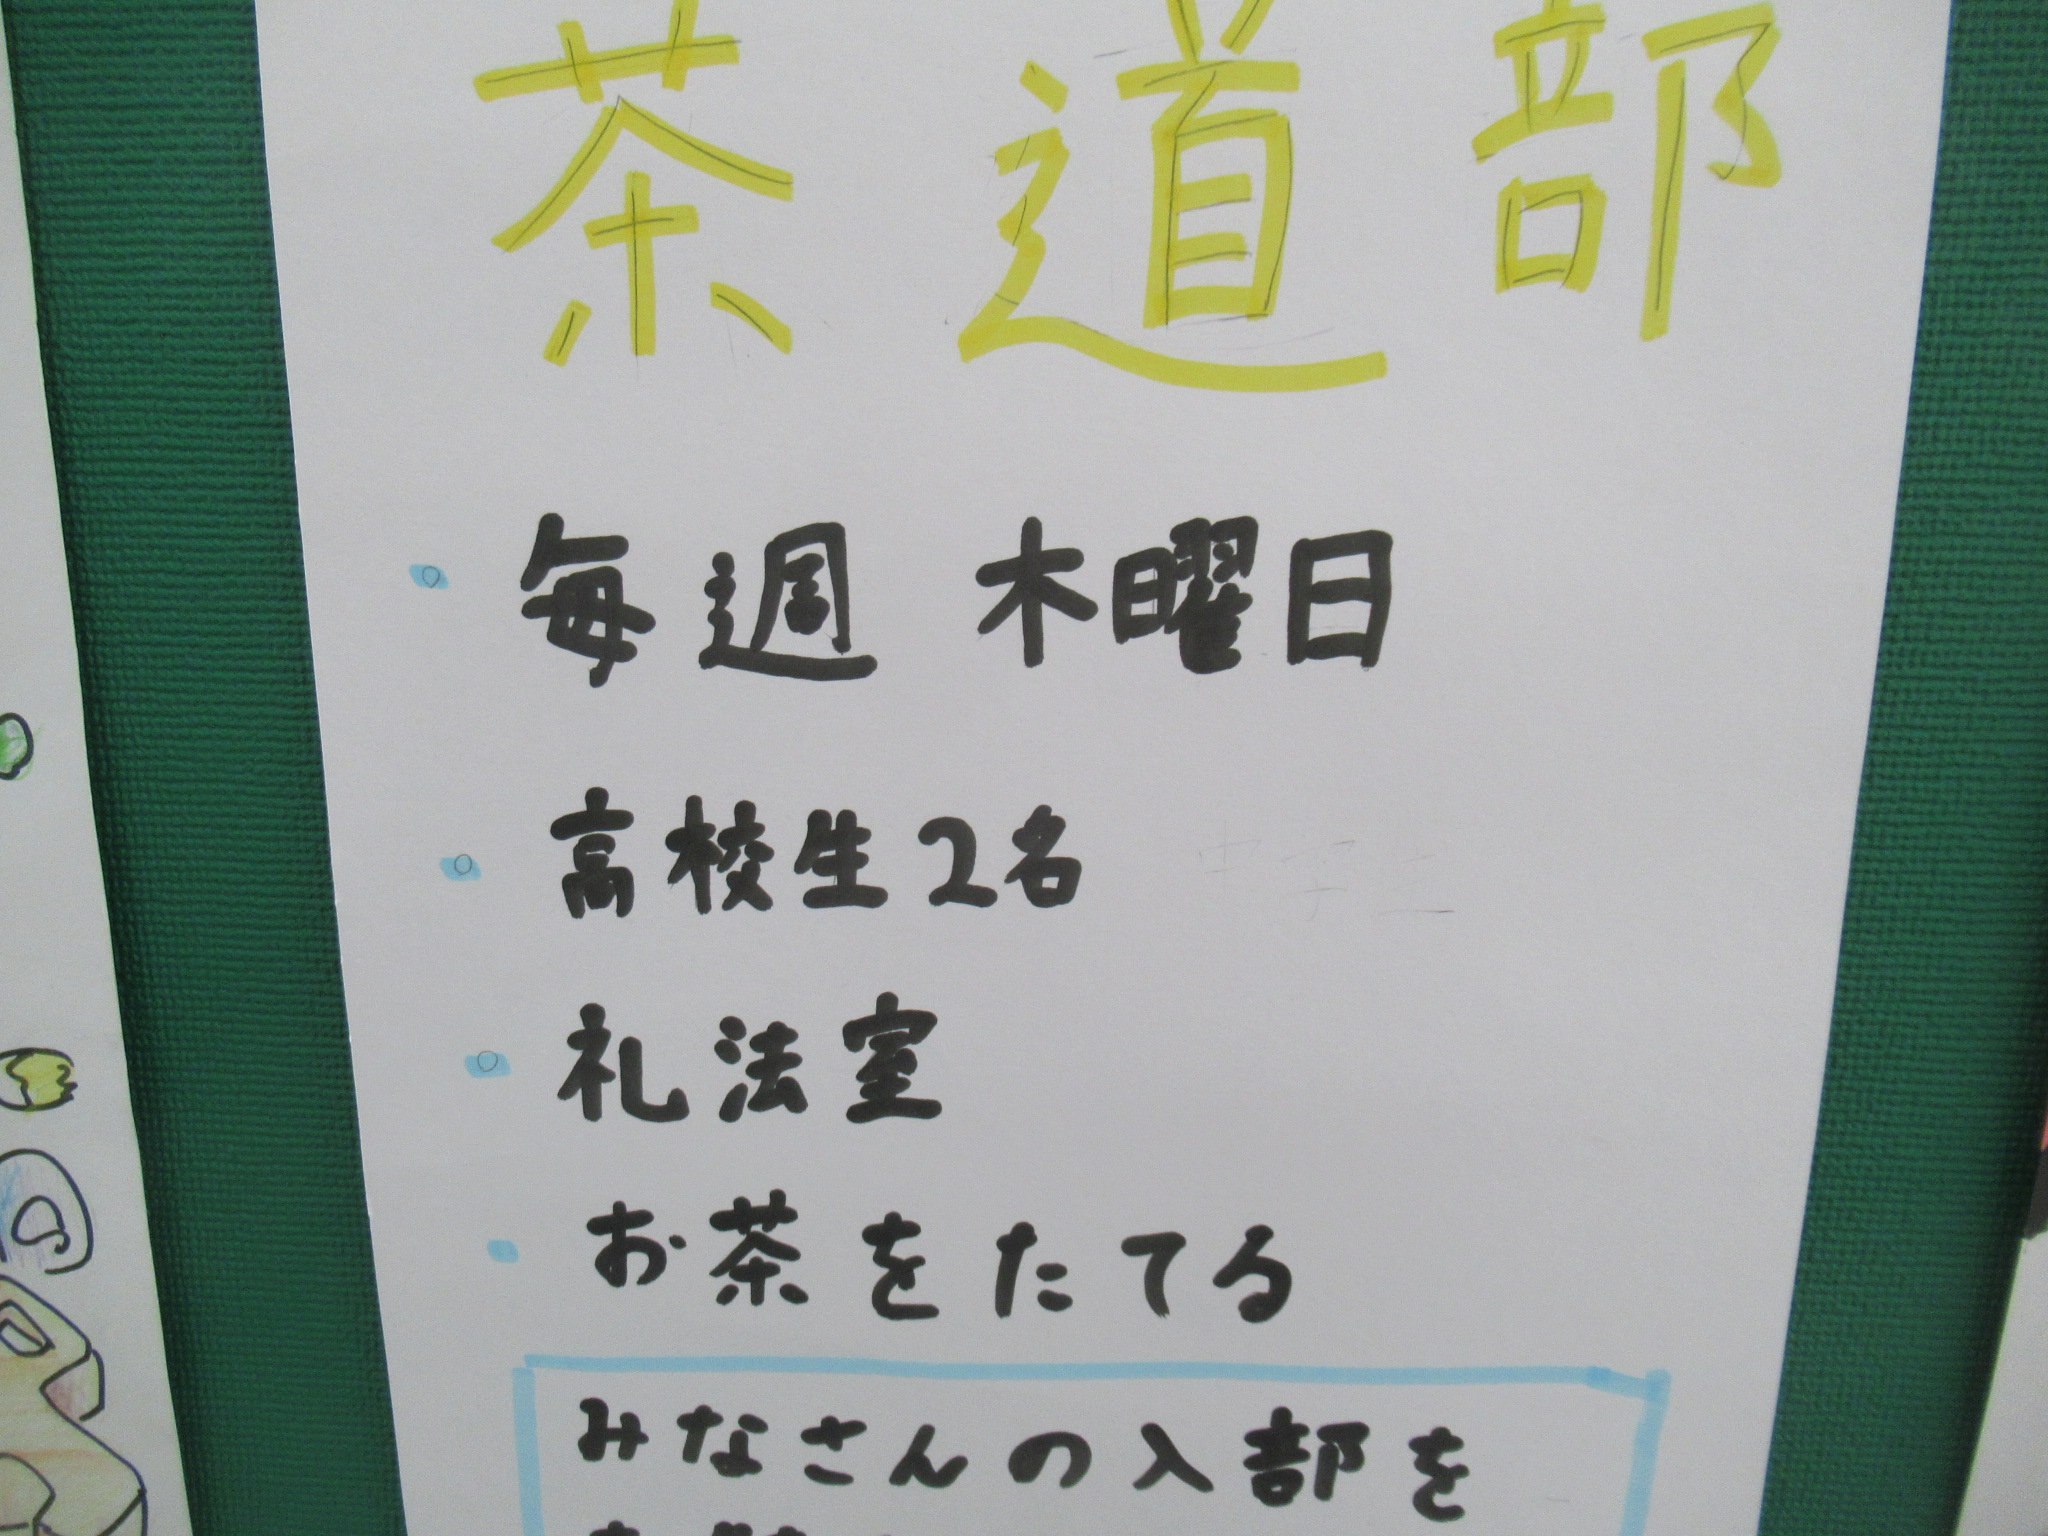 茶道部
毎週 木曜日
高校生2名
礼法室
お茶をたてる
みなさんの入部を